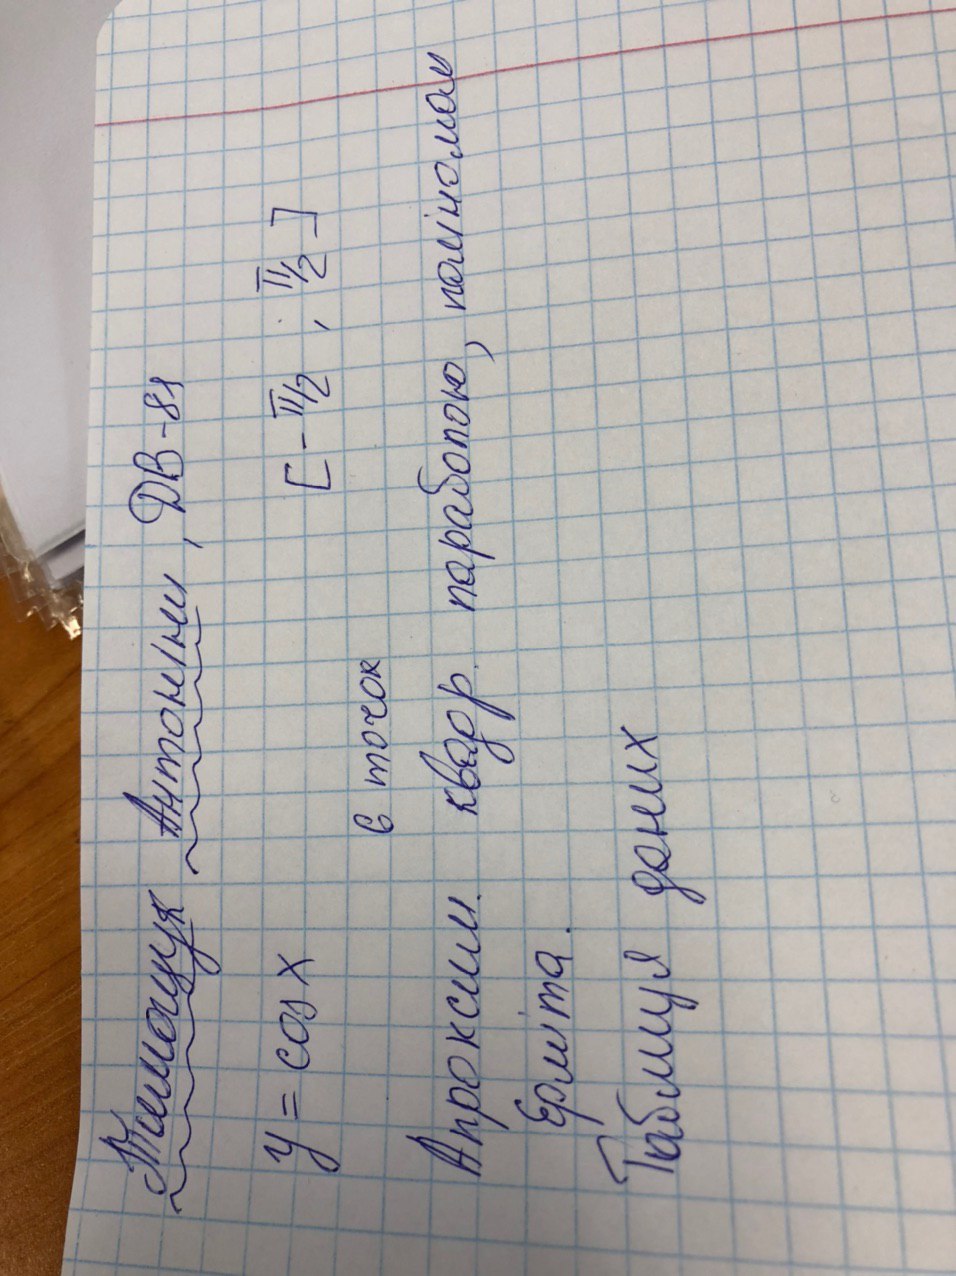 Тимощук Антоніни, ДВ-81
y = cos x [-π/2 ; π/2]
6 точок
Апроксим. квадр. параболою, поліномом
Ерміта.
Таблиця даних